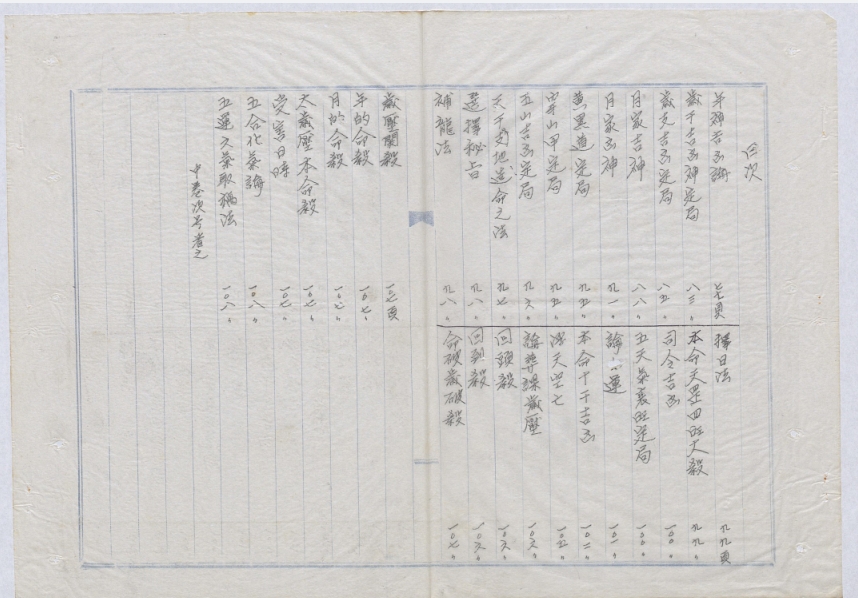 目次
年神吉凶論 七七頁
歲干吉凶神定局 八三〃
歲支吉凶定局 八五〃
月家吉神 八八〃
月家凶神 九一〃
黃黑道定局 九五〃
穿山甲定局 九五〃
五山吉凶定局 九六〃
天干支地造命之法 九七〃
選擇秘旨 九八〃
補龍法 九八〃
擇日法 九九頁
本命天罡四旺大殺 九九〃
司令吉凶 一〇〇〃
五天氣衰旺定局 一〇〇〃
論六運 一〇一〃
本命十干吉凶 一〇二〃
滅天罡七 一〇五〃
論葬課歲壓 一〇六〃
回頭殺 一〇六〃
回到殺 一〇六〃
命破歲破殺 一〇七〃
歲壓關殺 一〇七頁
年的命殺 一〇七〃
月的命殺 一〇七〃
太歲壓本命殺 一〇七〃
受害日時 一〇七〃
五合化氣論 一〇八〃
五運六氣取禍法 一〇八〃
中卷次号者之